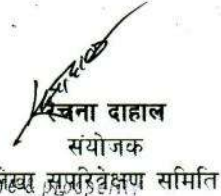 रचना दाहाल
संयोजक
लेखा सुपरिवेक्षण समिति